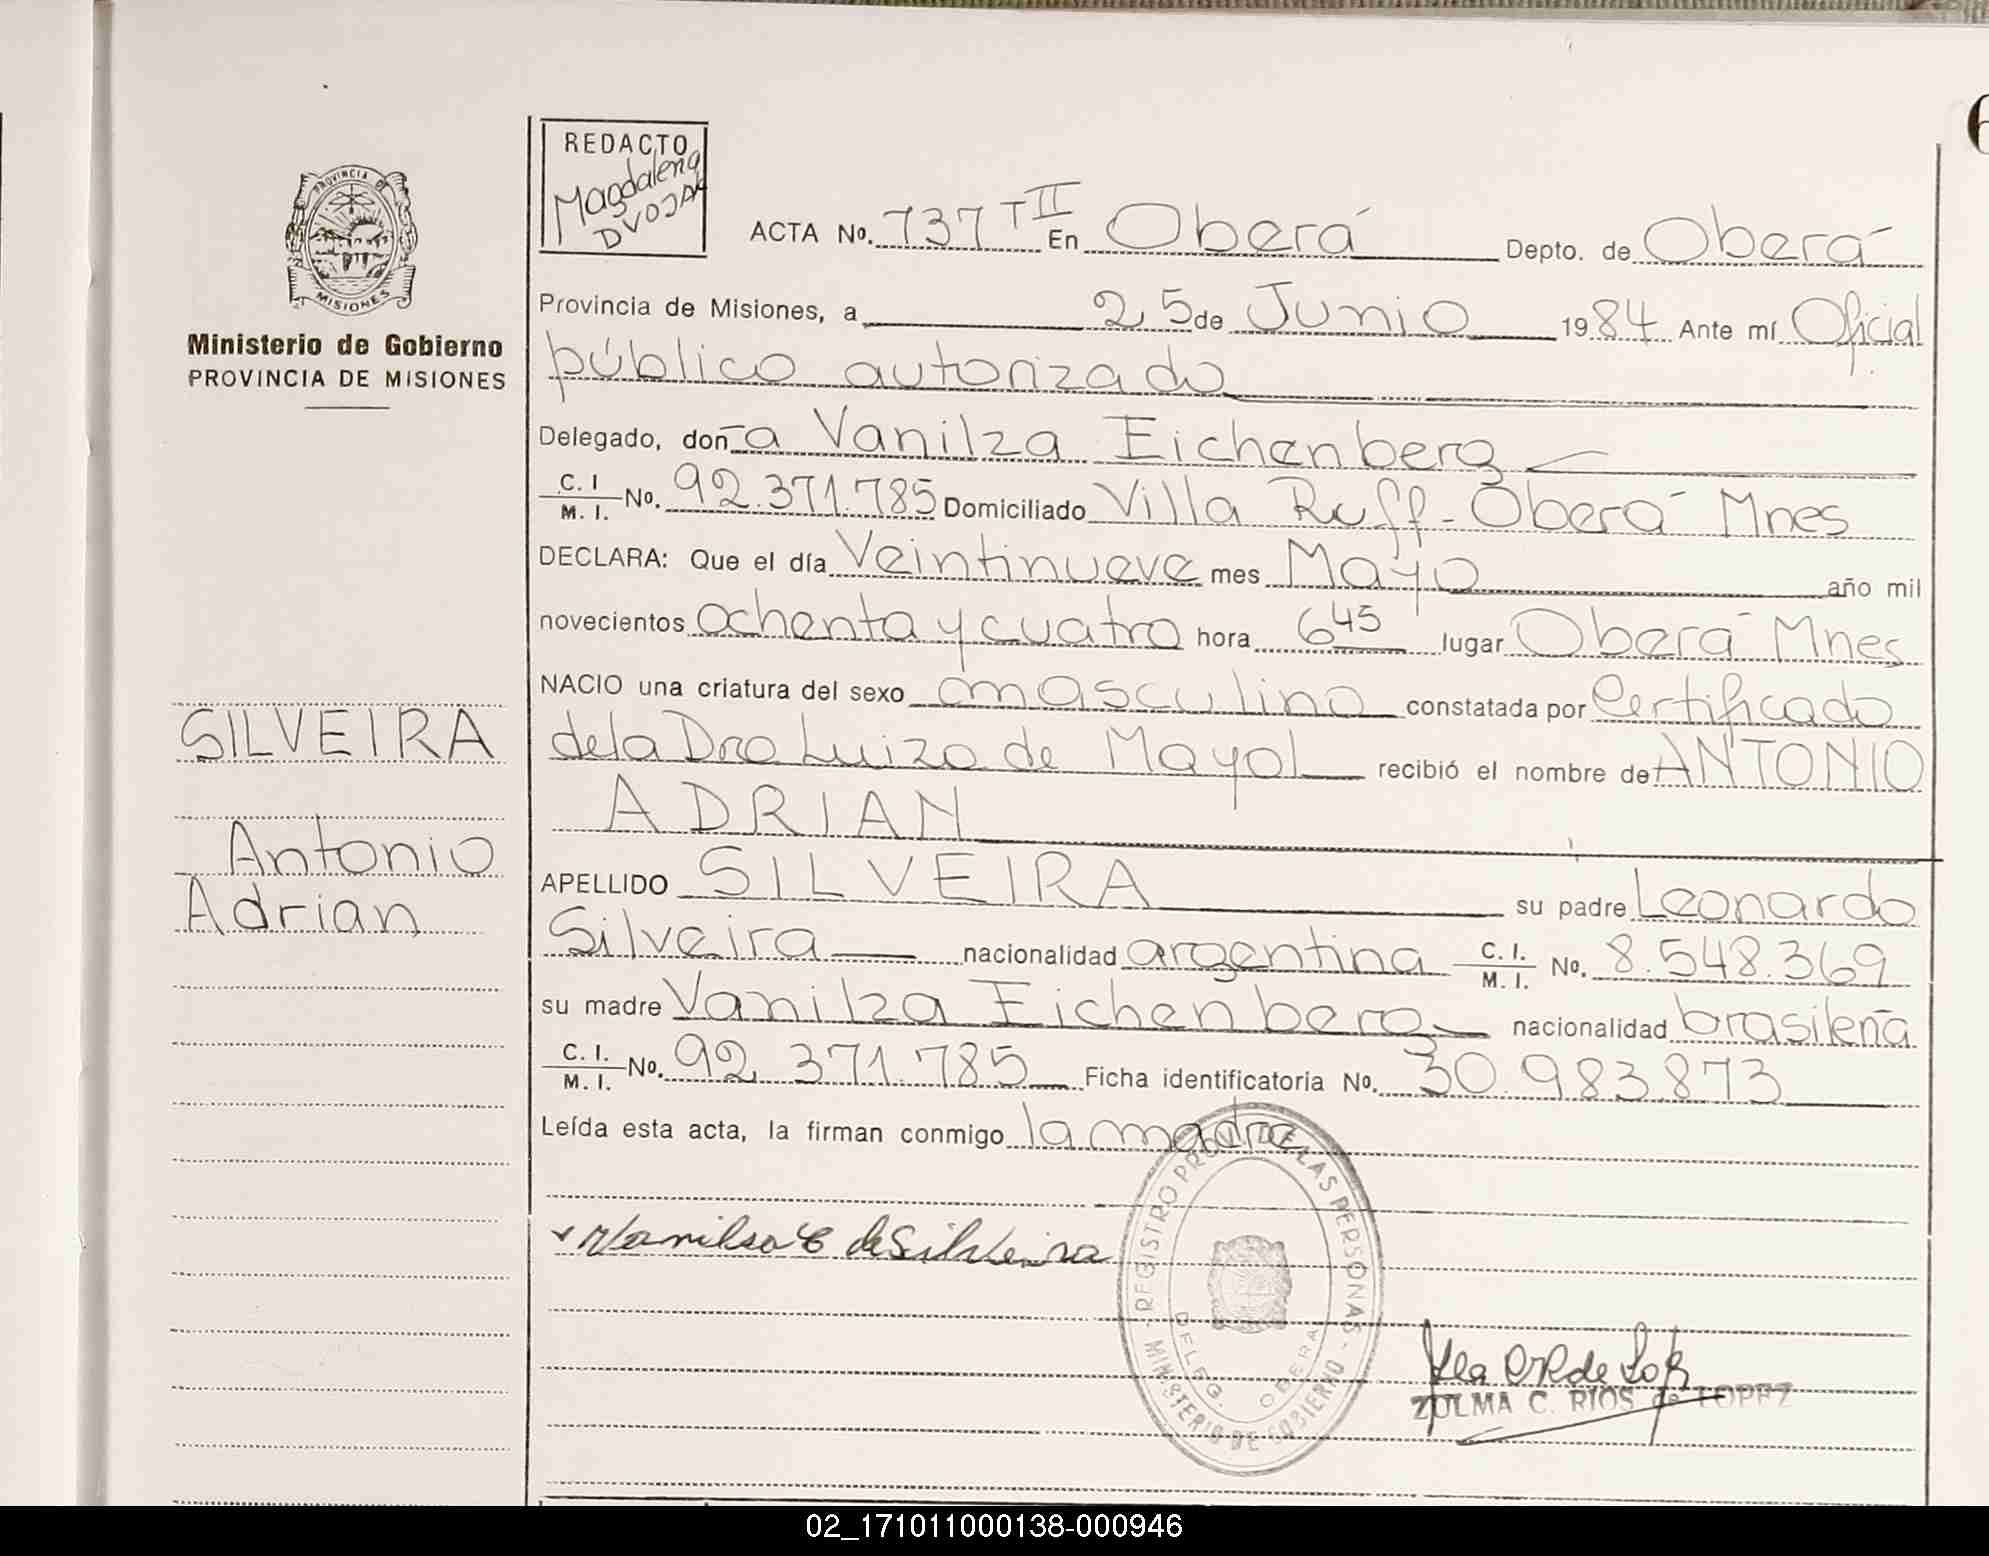 6
REDACTO
Magdalena
DVOJAK
PROVINCIA DE
MISIONES
Ministerio de Gobierno
PROVINCIA DE MISIONES
ACTA No. 737 T II En Oberá Depto. de Oberá
Provincia de Misiones, a 25 de Junio 1984 Ante mí Oficial
público autorizado
Delegado, don a Vanilza Eichenberg
C. I / M. I. No. 92.371.785 Domiciliado Villa Ruff - Oberá Mnes
DECLARA: Que el día Veintinueve mes Mayo año mil
novecientos ochenta y cuatro hora 6 45 lugar Oberá Mnes
NACIO una criatura del sexo masculino constatada por Certificado
de la Dra Luiza de Mayol recibió el nombre de ANTONIO
ADRIAN
APELLIDO SILVEIRA su padre Leonardo
Silveira nacionalidad argentina C. I. / M. I. No. 8.548.369
su madre Vanilza Eichenberg nacionalidad brasileña
C. I. / M. I. No. 92.371.785 Ficha identificatoria No. 30.983.873
Leída esta acta, la firman conmigo la madre
SILVEIRA
Antonio
Adrian
Vanilsa E de Silveira
REGISTRO PROV. DE LAS PERSONAS - MINISTERIO DE GOBIERNO -
DELEG. OBERA
ZULMA C. RIOS de LOPEZ
02_171011000138-000946